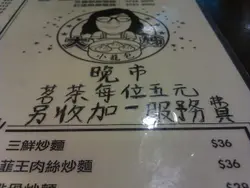 晚市
茗茶每位五元
另收加一服務費
三鮮炒麵 $36
韮王肉絲炒麵 $36